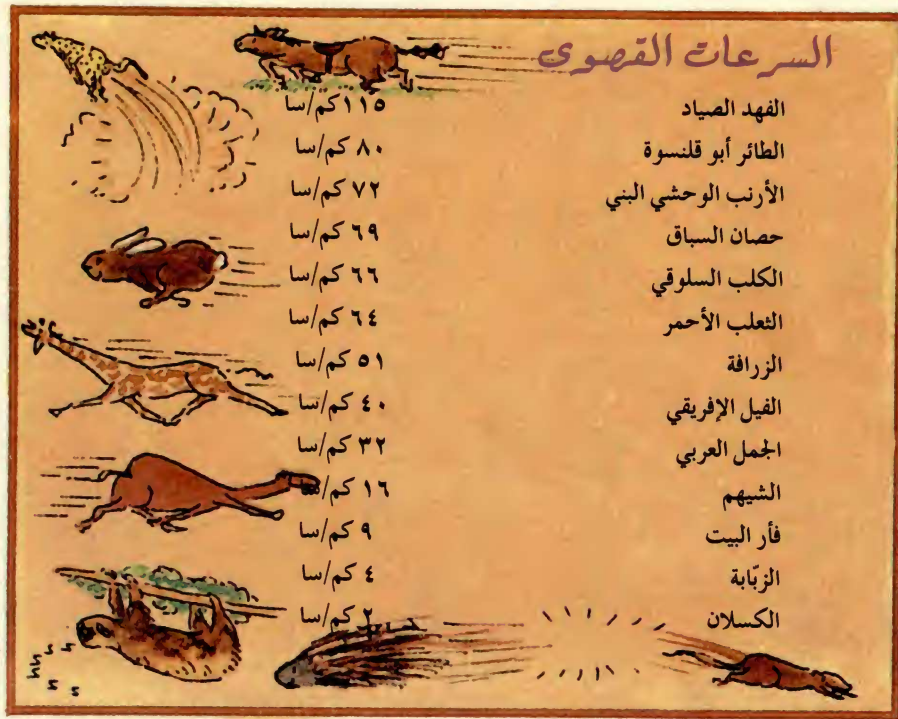 السرعات القصوى
الفهد الصياد ١١٥ كم/سا
الطائر أبو قلنسوة ٨٠ كم/سا
الأرنب الوحشي البني ٧٢ كم/سا
حصان السباق ٦٩ كم/سا
الكلب السلوقي ٦٦ كم/سا
الثعلب الأحمر ٦٤ كم/سا
الزرافة ٥١ كم/سا
الفيل الإفريقي ٤٠ كم/سا
الجمل العربي ٣٢ كم/سا
الشيهم ١٦ كم/سا
فأر البيت ٩ كم/سا
الزبّابة ٤ كم/سا
الكسلان ٢ كم/سا